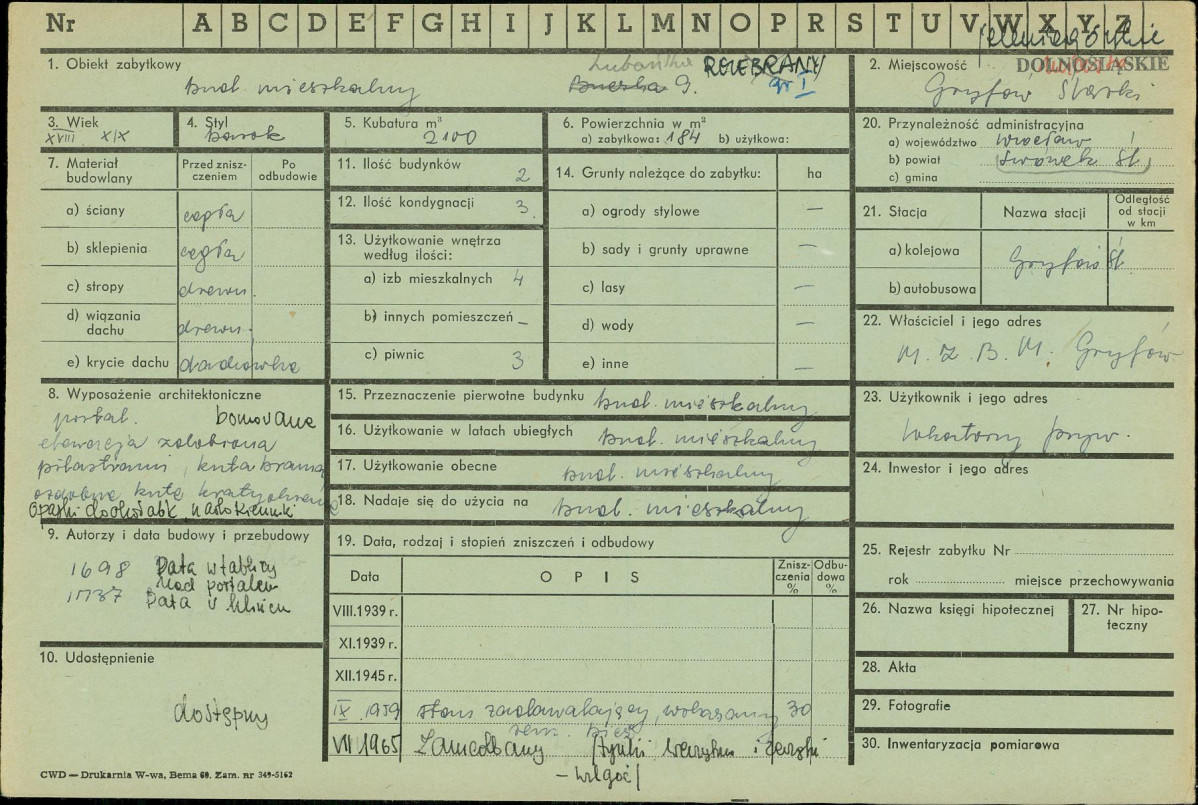 Nr A B C D E F G H I J K L M N O P R S T U V W X Y Z
jeleniogórskie
1. Obiekt zabytkowy
Lubańska ROZEBRANY
bud. mieszkalny 9. gr I
2. Miejscowość DOLNOŚLĄSKIE
Gryfów Śląski
3. Wiek
XVIII XIX
4. Styl
barok
5. Kubatura m³
2100
6. Powierzchnia w m²
a) zabytkowa: 184 b) użytkowa:
7. Materiał budowlany
Przed zniszczeniem
Po odbudowie
a) ściany cegła
b) sklepienia cegła
c) stropy drewn.
d) wiązania dachu drewn.
e) krycie dachu dachówka
8. Wyposażenie architektoniczne
portal. boniowane
elewacja zdobiona
pilastrami, kuta brama
ozdobne kute kraty okienne
Opaski dookoła ok. nadokienniki
9. Autorzy i data budowy i przebudowy
1698 Data w tablicy
nad portalem
1737 Data w kluczu
10. Udostępnienie
dostępny
11. Ilość budynków 2
12. Ilość kondygnacji 3.
13. Użytkowanie wnętrza
według ilości:
a) izb mieszkalnych 4
b) innych pomieszczeń –
c) piwnic 3
14. Grunty należące do zabytku: ha
a) ogrody stylowe —
b) sady i grunty uprawne —
c) lasy —
d) wody —
e) inne —
15. Przeznaczenie pierwotne budynku bud. mieszkalny
16. Użytkowanie w latach ubiegłych bud. mieszkalny
17. Użytkowanie obecne bud. mieszkalny
18. Nadaje się do użycia na bud. mieszkalny
19. Data, rodzaj i stopień zniszczeń i odbudowy
Data OPIS Zniszczenia % Odbudowa %
VIII.1939 r.
XI.1939 r.
XII.1945 r.
IX 1959 stan zadawalający, wskazany 30
rem. bież.
VII 1965 Zaniedbany (tynki wewnątrz i zewnątrz
– wilgoć)
20. Przynależność administracyjna
a) województwo Wrocław
b) powiat Lwówek Śl.
c) gmina
21. Stacja Nazwa stacji Odległość od stacji w km
a) kolejowa Gryfów Śl.
b) autobusowa
22. Właściciel i jego adres
M.Z.B.M. Gryfów
23. Użytkownik i jego adres
lokatorzy pryw.
24. Inwestor i jego adres
25. Rejestr zabytku Nr
rok miejsce przechowywania
26. Nazwa księgi hipotecznej
27. Nr hipoteczny
28. Akta
29. Fotografie
30. Inwentaryzacja pomiarowa
CWD — Drukarnia W-wa, Bema 60. Zam. nr 349-5162